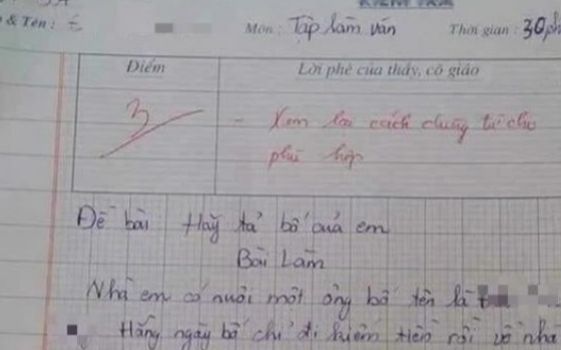 KIỂM TRA
& Tên :
Môn : Tập làm văn
Thời gian : 30ph
Điểm
Lời phê của thầy, cô giáo
3
- Xem lại cách dùng từ cho
phù hợp
Đề bài Hãy tả bố của em
Bài Làm
Nhà em có nuôi một ông bố tên là
Hằng ngày bố chỉ đi kiếm tiền rồi về nhà